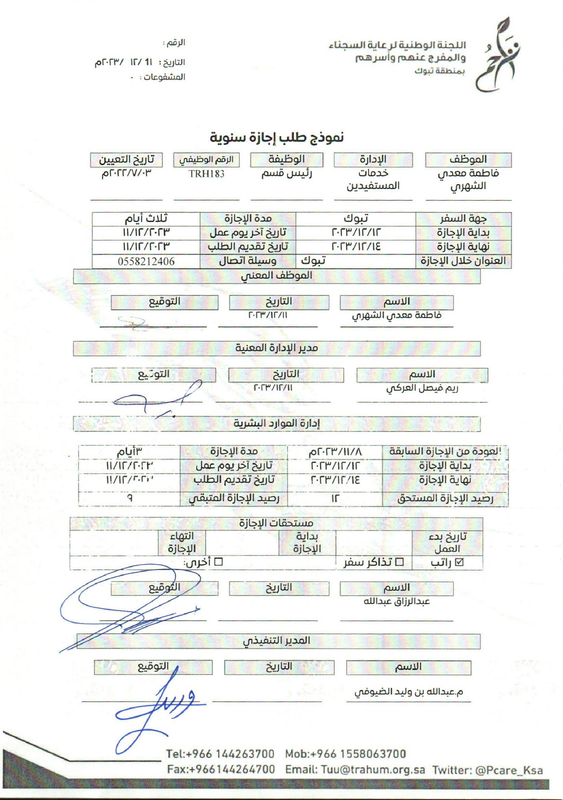 اللجنة الوطنية لرعاية السجناء
والمفرج عنهم وأسرهم
بمنطقة تبوك
تراحم
الرقم :
التاريخ : ١١/ ١٢/ ٢٠٢٣م
المشفوعات : ٠
نموذج طلب إجازة سنوية
الموظف الإدارة الوظيفة الرقم الوظيفي تاريخ التعيين
فاطمة معدي الشهري خدمات المستفيدين رئيس قسم TRH183 ٢٠٢٢/٧/٠٣م
جهة السفر تبوك مدة الإجازة ثلاث أيام
بداية الإجازة ٢٠٢٣/١٢/١٢ تاريخ آخر يوم عمل ١١/١٢/٢٠٢٣
نهاية الإجازة ٢٠٢٣/١٢/١٤ تاريخ تقديم الطلب ١١/١٢/٢٠٢٣
العنوان خلال الإجازة تبوك وسيلة اتصال 0558212406
الموظف المعني
الاسم التاريخ التوقيع
فاطمة معدي الشهري ٢٠٢٣/١٢/١١
مدير الإدارة المعنية
الاسم التاريخ التوقيع
ريم فيصل العركي ٢٠٢٣/١٢/١١
إدارة الموارد البشرية
العودة من الإجازة السابقة ٢٠٢٣/١١/٨م مدة الإجازة ٣أيام
بداية الإجازة ٢٠٢٣/١٢/١٢ تاريخ آخر يوم عمل ١١/١٢/٢٠٢٣
نهاية الإجازة ٢٠٢٣/١٢/١٤ تاريخ تقديم الطلب
رصيد الإجازة المستحق ١٢ رصيد الإجازة المتبقي ٩
مستحقات الإجازة
تاريخ بدء العمل بداية الإجازة انتهاء الإجازة
☑ راتب ☐ تذاكر سفر ☐ أخرى:
الاسم التاريخ التوقيع
عبدالرزاق عبدالله
المدير التنفيذي
الاسم التاريخ التوقيع
م.عبدالله بن وليد الضيوفي
Tel:+966 144263700 Mob:+966 1558063700
Fax:+966144264700 Email: Tuu@trahum.org.sa Twitter: @Pcare_Ksa